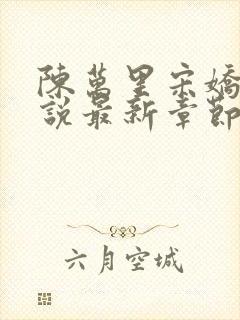 陳萬里宋嬌
說最新章節
六月空城